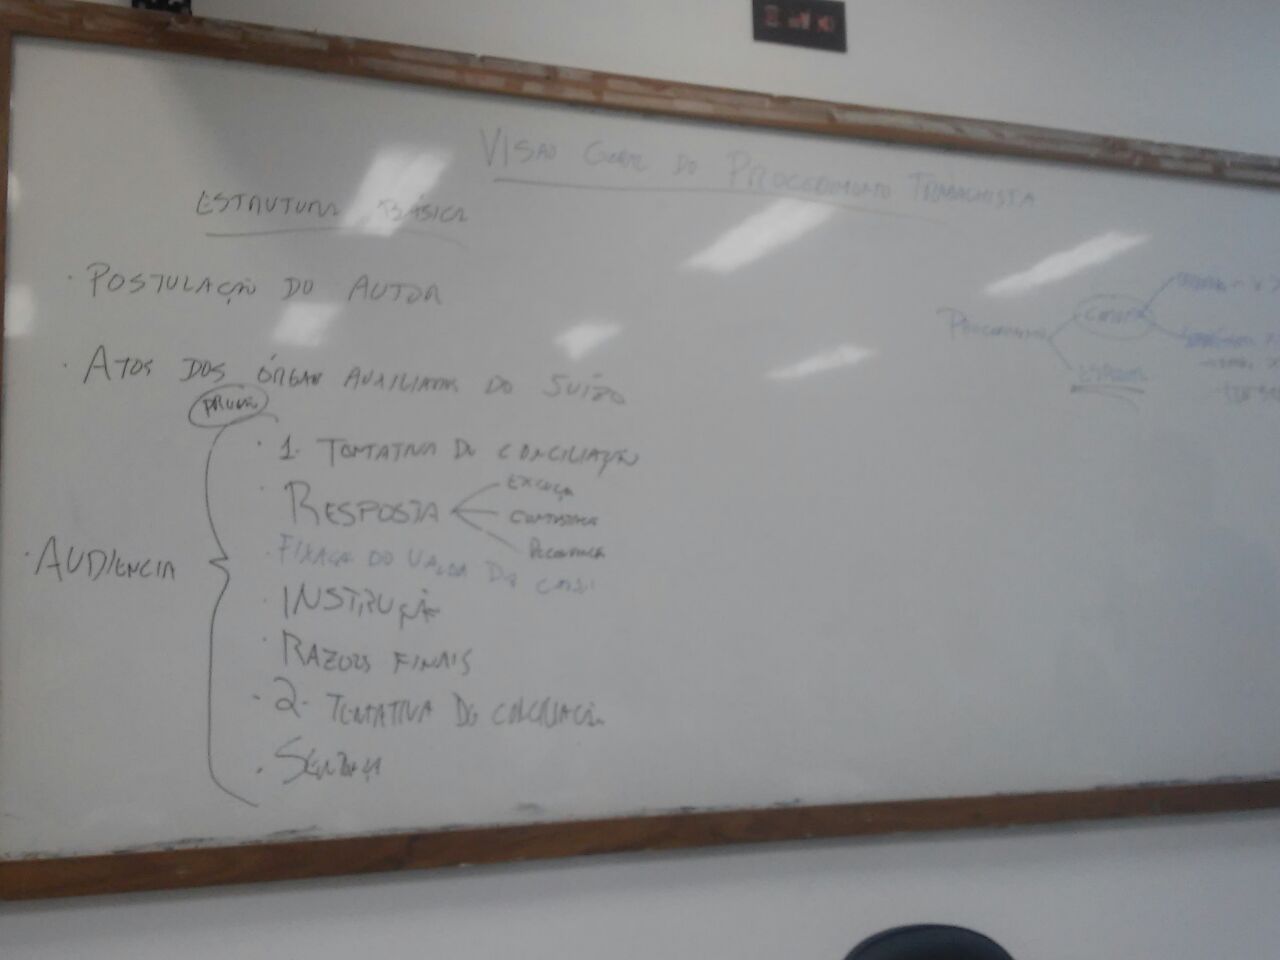 VISÃO GERAL DO PROCEDIMENTO TRABALHISTA
ESTRUTURA BÁSICA
· POSTULAÇÃO DO AUTOR
· ATOS DOS ÓRGÃOS AUXILIARES DO JUÍZO
· AUDIENCIA
· 1. TENTATIVA DE CONCILIAÇÃO
· RESPOSTA
EXCEÇÃO
CONTESTAÇÃO
RECONVENÇÃO
· FIXAÇÃO DO VALOR DA CAUSA
· INSTRUÇÃO
· RAZÕES FINAIS
· 2. TENTATIVA DE CONCILIAÇÃO
· SENTENÇA
PROCEDIMENTO
COMUM
ESPECIAL